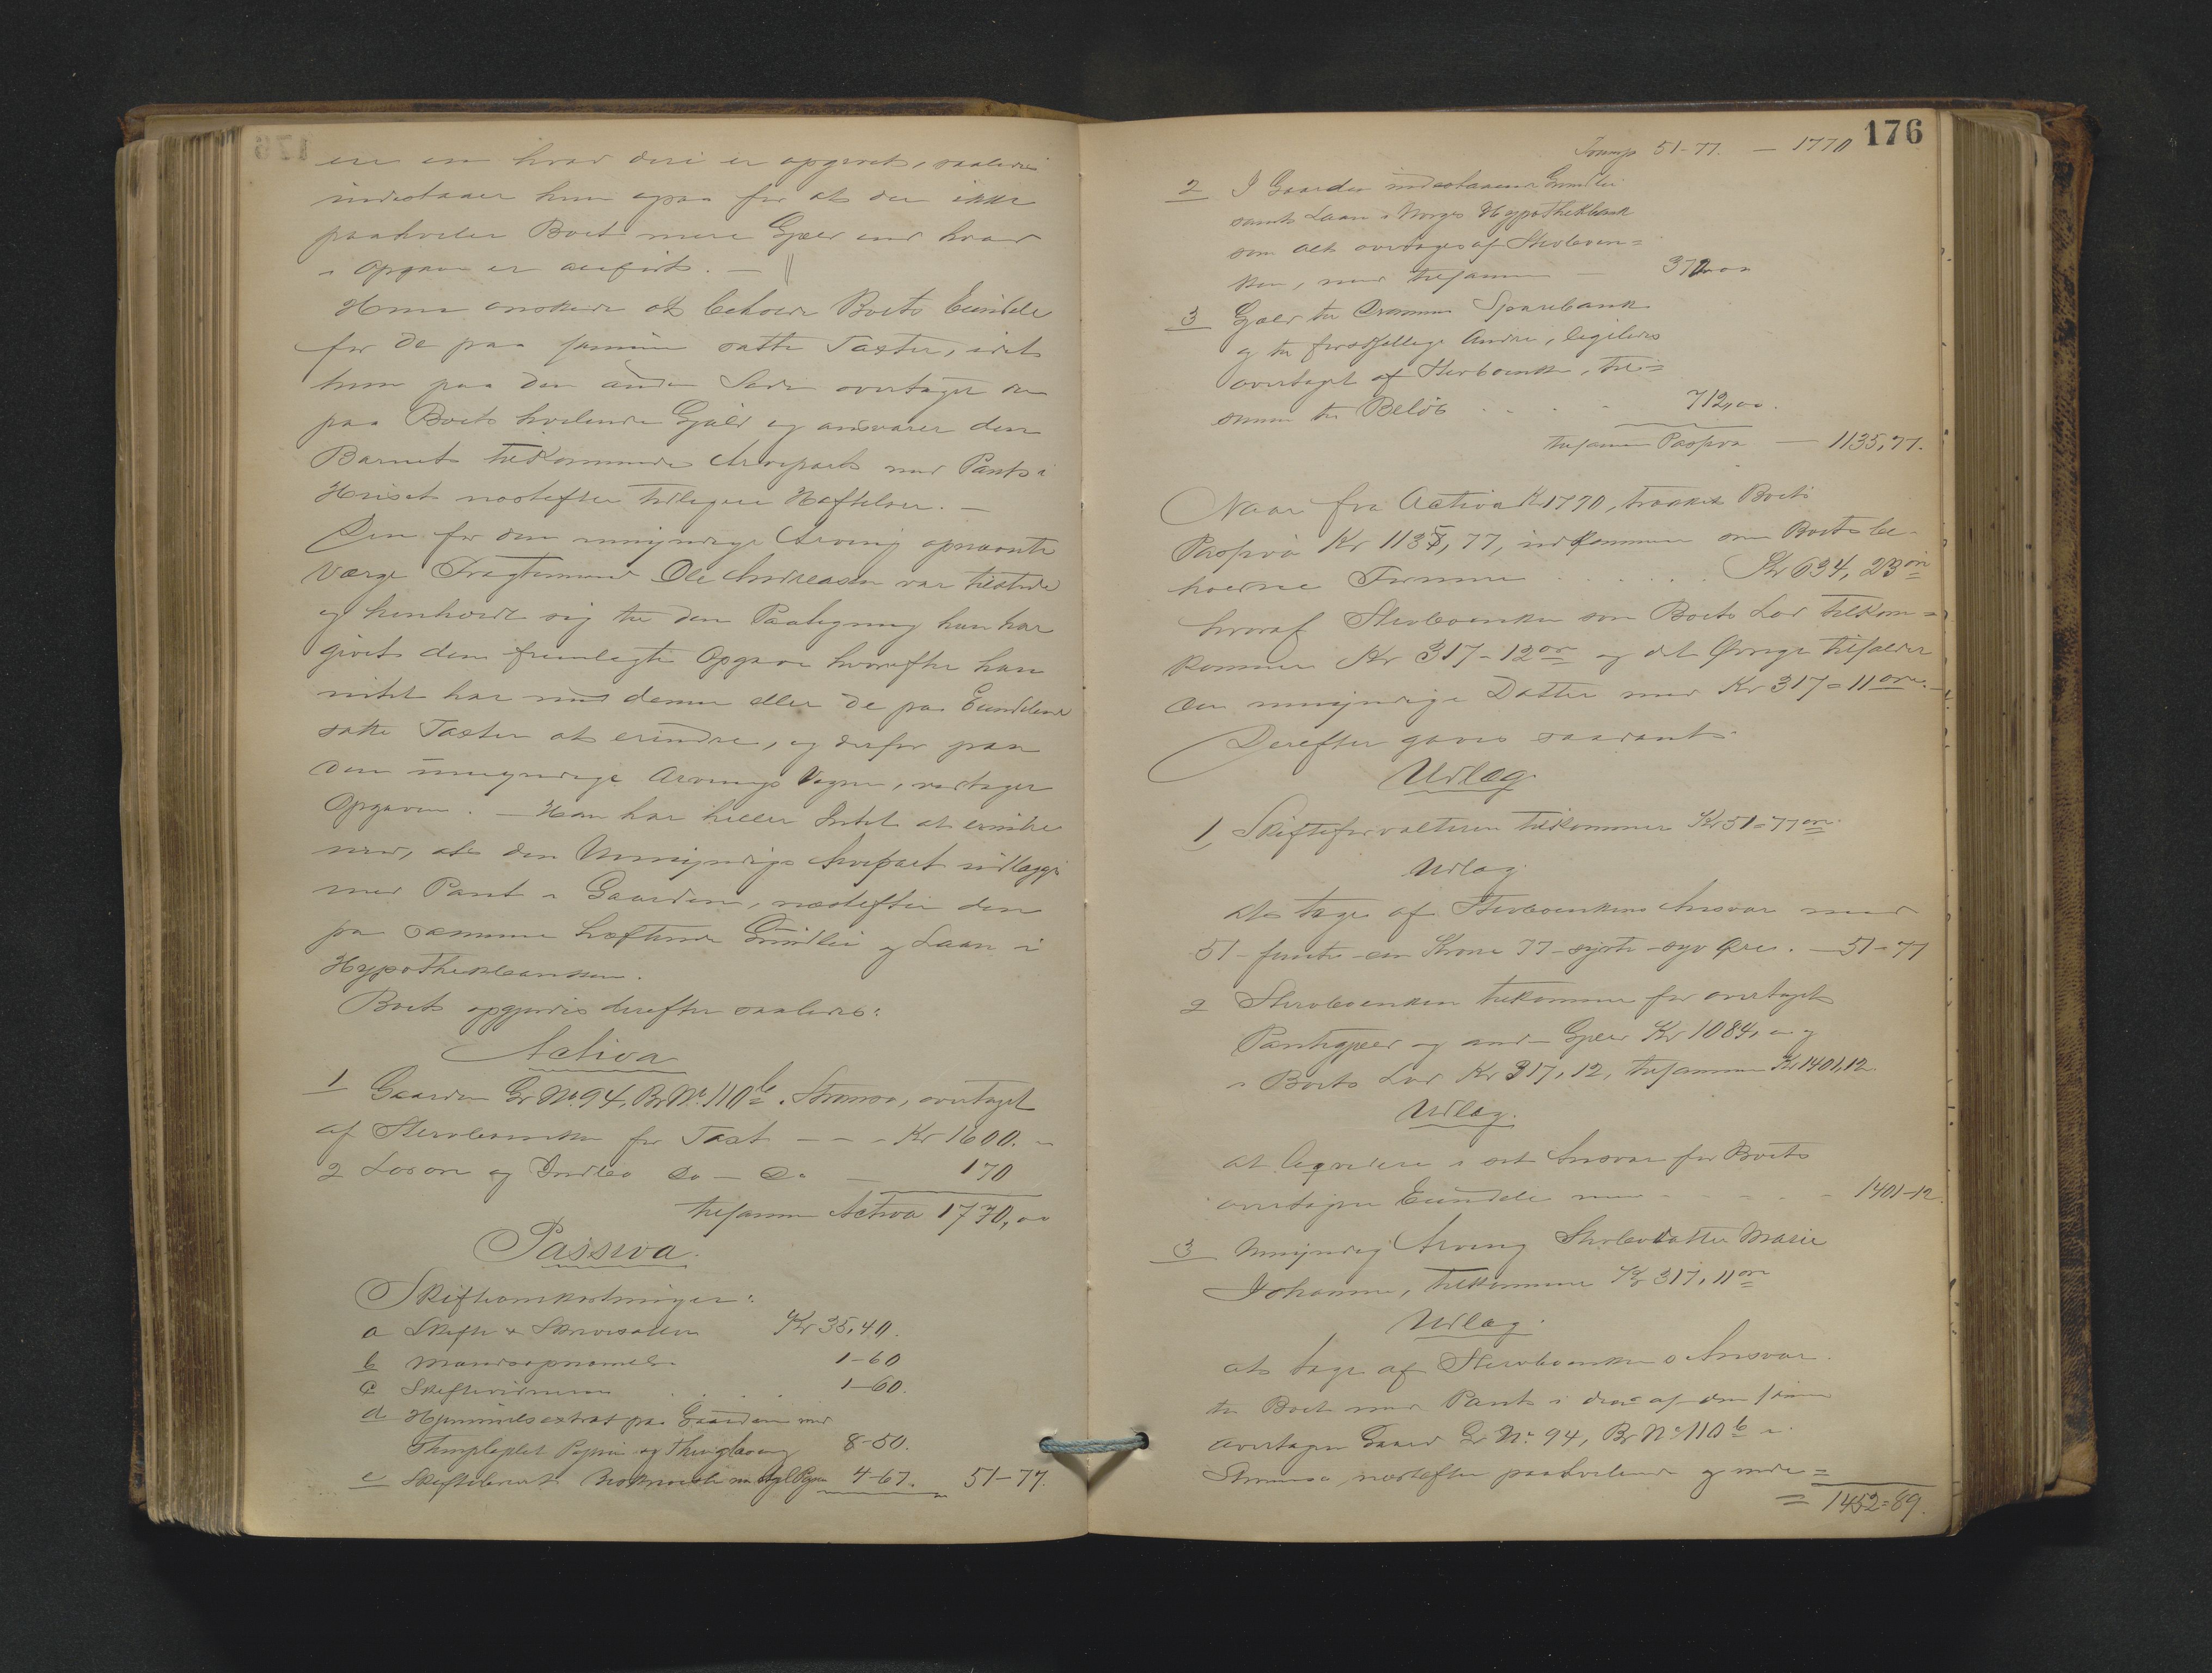 en om hvad deri er opgivet, saaledes
indestaaer hun ogsaa for at der ikke
paahviler Boet mere Gjæld end hvad
i Opgaven er anført. —
Hun ønskede at beholde Boets Eiendele
for de paa samme satte Taxter, idet
hun paa den anden Side overtager den
paa Boet hvilende Gjæld og ansvarer den
Barnet tilkommende Arvepart med Pant i
Huset næstefter tidligere Hæftelser. —
Den for den umyndige Arving opnævnte
Værge Fragtemand Ole Andreasen var tilstede
og henholdt sig til den Paategning han har
givet den fremlagte Opgave hvorefter han
intet har mod denne eller de paa Eiendelene
satte Taxter at erindre, og derfor paa
den umyndige Arvings Vegne, vedtager
Opgaven. — Han har heller Intet at erindre
mod, at den Umyndiges Arvepart udlægges
med Pant i Gaarden, næstefter den
paa samme heftende Grundleie og Laan i
Hypothekbanken.
Boet opgjordes derefter saaledes:
Activa
1 Gaarden Gr No. 94, Br No. 110 b i Strømsø, overtaget
af Stervboenken for Taxt - - - Kr 1600. "
2 Løsøre og Indbo do — do — 170
tilsammen Activa 1770,00
Passiva.
Skifteomkostninger:
a Skifte & Skriversalær Kr 35,40.
b Mandsopnævnelse 1-60
c Skiftevidnerne . . . . 1-60.
d Hjemmelsextrat paa Gaarden med
Stemplet Papir og Thinglæsning 8-50.
e Skiftebrevets Beskrivelse med stpl Papir 4-67. 51-77.
176
Transp 51-77. — 1770
2 I Gaarden indestaaende Grundleie
samt Laan i Norges Hypothekbank
som alt overtages af Stervboen=
ken, med tilsammen — 372,00
3 Gjæld til Drammens Sparebank
og til forskjellige Andre, ligeledes
overtaget af Stervboenken, til=
sammen til Beløb . . . . 712,00.
tilsammen Passiva — 1135,77.
Naar fra Activa Kr 1770, trækkes Boets
Passiva Kr 1135,77, udkommer som Boets be-
holdne Formue . . . . . Kr 634, 23 øre
hvoraf Stervboenken som Boets Lod tilkom=
kommer Kr 317-12 øre og det Øvrige tilfalder
den umyndige Datter med Kr 317=11 øre. —
Derefter gaves saadant
Udlæg.
1, Skifteforvalteren tilkommer Kr 51=77 øre.
Udlæg.
at tage af Stervboenkens Ansvar med
51 - femti - en Krone 77 - sytti - syv Øre. — 51=77
2 Stervboenken tilkommer for overtaget
Pantegjæld og anden Gjæld Kr 1084, " og
i Boets Lod Kr 317,12, tilsammen Kr 1401,12.
Udlæg.
at liqvidere i sit Ansvar for Boets
overtagne Eiendele med - - - - - - 1401-12.
3 Umyndig Arving Stervbodatter Marie
Johanne, tilkommer Kr 317, 11 øre
Udlæg.
at tage af Stervboenkens Ansvar
til Boet med Pant i den af denne
overtagne Gaard Gr No. 94, Br No 110 b i
Strømsø næstefter paahvilende og inde=
= 1452=89.